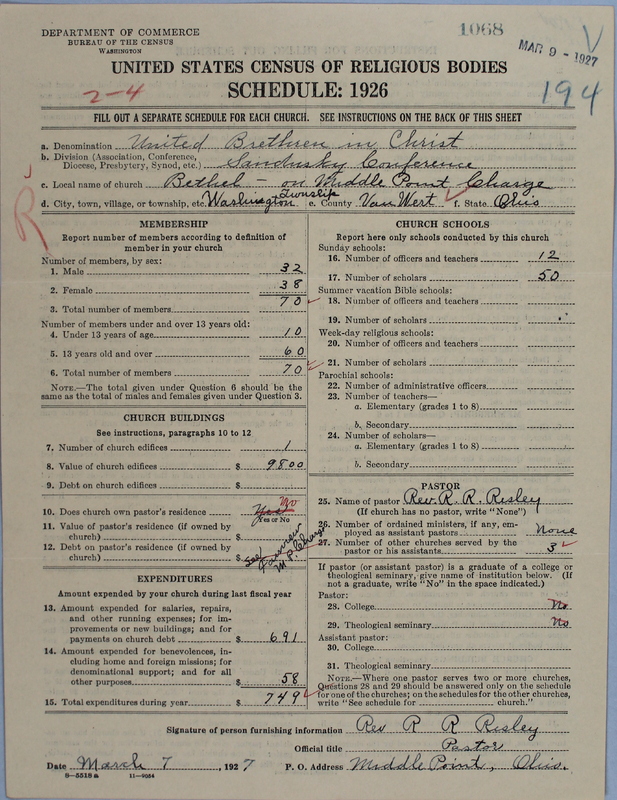 DEPARTMENT OF COMMERCE
BUREAU OF THE CENSUS
WASHINGTON
1068
MAR 9 - 1927
UNITED STATES CENSUS OF RELIGIOUS BODIES
SCHEDULE: 1926
2-4
194
FILL OUT A SEPARATE SCHEDULE FOR EACH CHURCH. SEE INSTRUCTIONS ON THE BACK OF THIS SHEET
a. Denomination United Brethren in Christ
b. Division (Association, Conference, Diocese, Presbytery, Synod, etc.) Sandusky Conference
c. Local name of church Bethel - on Middle Point Charge
d. City, town, village, or township, etc. Washington Township e. County Van Wert f. State Ohio
R
MEMBERSHIP
Report number of members according to definition of
member in your church
Number of members, by sex:
1. Male 32
2. Female 38
3. Total number of members 70
Number of members under and over 13 years old:
4. Under 13 years of age 10
5. 13 years old and over 60
6. Total number of members 70
NOTE.—The total given under Question 6 should be the
same as the total of males and females given under Question 3.
CHURCH BUILDINGS
See instructions, paragraphs 10 to 12
7. Number of church edifices 1
8. Value of church edifices $ 9800
9. Debt on church edifices $
10. Does church own pastor's residence Yes no
Yes or No
11. Value of pastor's residence (if owned by
church) $
12. Debt on pastor's residence (if owned by
church) $
See
M P. Charge
EXPENDITURES
Amount expended by your church during last fiscal year
13. Amount expended for salaries, repairs,
and other running expenses; for im-
provements or new buildings; and for
payments on church debt $ 691
14. Amount expended for benevolences, in-
cluding home and foreign missions; for
denominational support; and for all
other purposes $ 58
15. Total expenditures during year $ 749
CHURCH SCHOOLS
Report here only schools conducted by this church
Sunday schools:
16. Number of officers and teachers 12
17. Number of scholars 50
Summer vacation Bible schools:
18. Number of officers and teachers
19. Number of scholars
Week-day religious schools:
20. Number of officers and teachers
21. Number of scholars
Parochial schools:
22. Number of administrative officers
23. Number of teachers—
a. Elementary (grades 1 to 8)
b. Secondary
24. Number of scholars—
a. Elementary (grades 1 to 8)
b. Secondary
PASTOR
25. Name of pastor Rev. R. R. Risley
(If church has no pastor, write "None")
26. Number of ordained ministers, if any, em-
ployed as assistant pastors None
27. Number of other churches served by the
pastor or his assistants 3
If pastor (or assistant pastor) is a graduate of a college or
theological seminary, give name of institution below. (If
not a graduate, write "No" in the space indicated.)
Pastor:
28. College No
29. Theological seminary No
Assistant pastor:
30. College
31. Theological seminary
NOTE.—Where one pastor serves two or more churches,
Questions 28 and 29 should be answered only on the schedule
for one of the churches; on the schedules for the other churches,
write "See schedule for church."
Signature of person furnishing information Rev R R Risley
Official title Pastor
Date March 7, 1927 P. O. Address Middle Point, Ohio.
8-5518a 11-9054